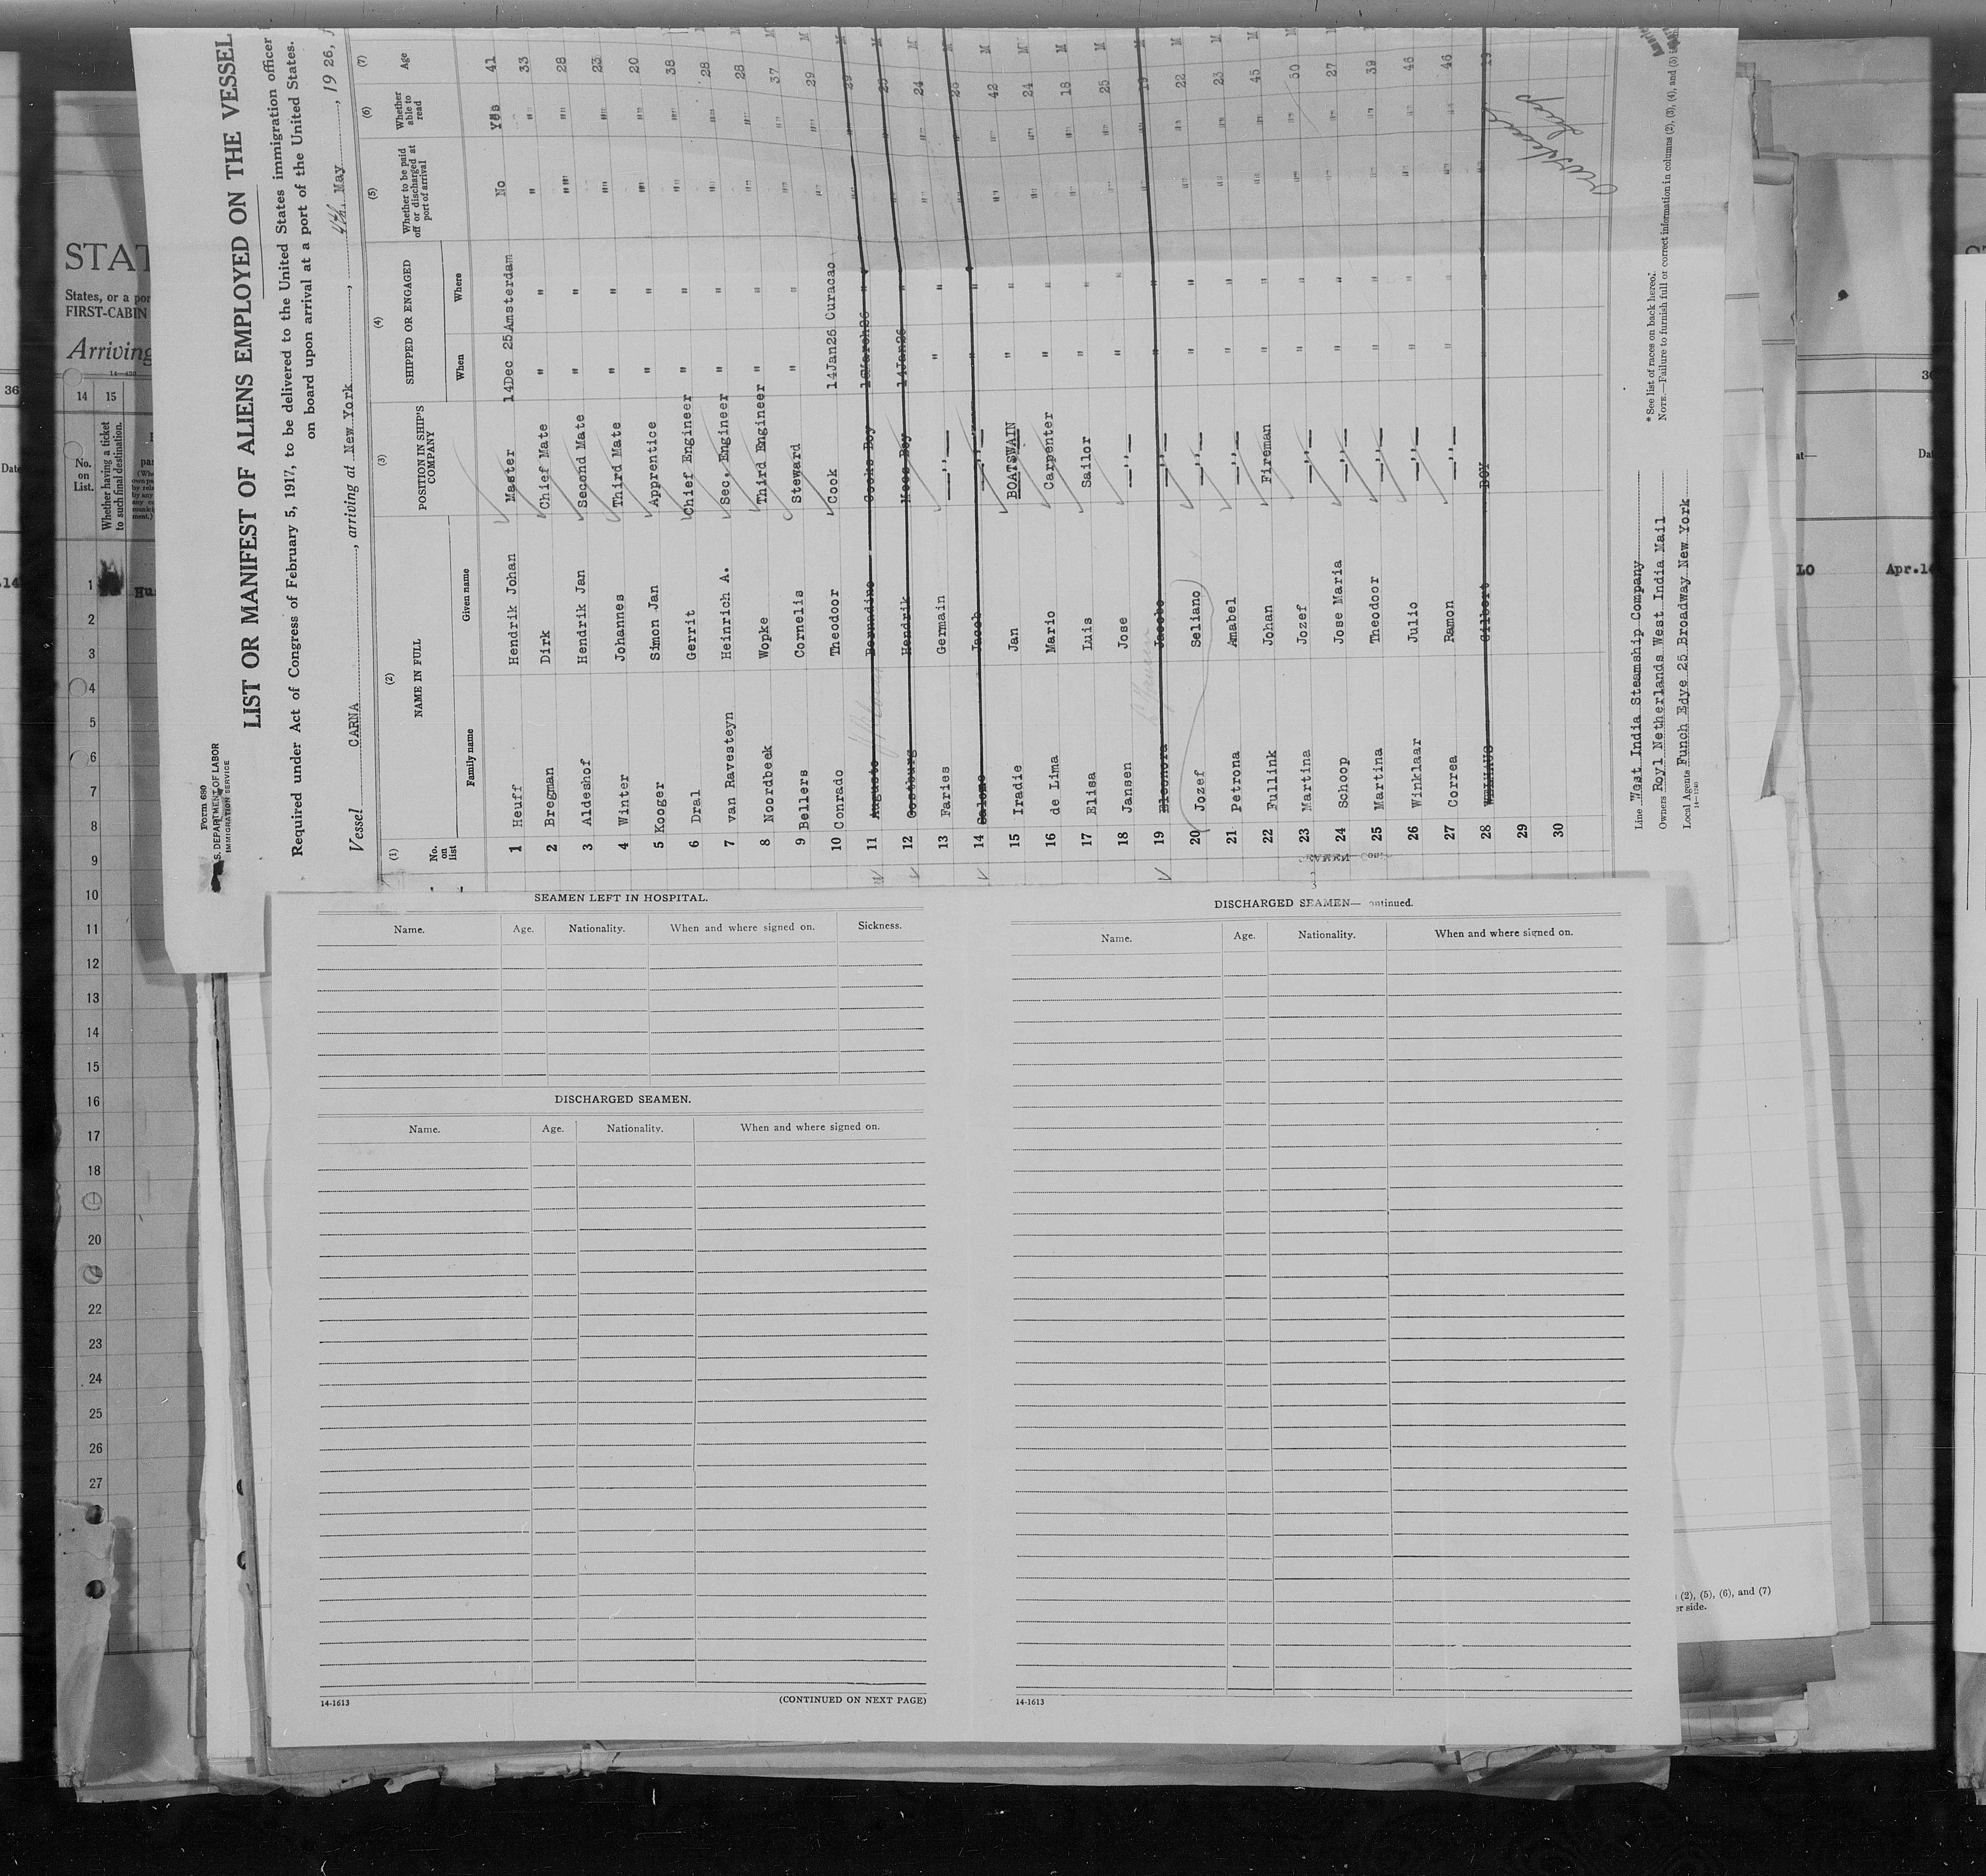 Form 680
U.S. DEPARTMENT OF LABOR
IMMIGRATION SERVICE
LIST OR MANIFEST OF ALIENS EMPLOYED ON THE VESSEL
Required under Act of Congress of February 5, 1917, to be delivered to the United States immigration officer
on board upon arrival at a port of the United States.
Vessel CARNA, arriving at New York, 4th. May, 1926,
(1) (2) (3) (4) (5) (6) (7)
No. on list NAME IN FULL POSITION IN SHIP'S COMPANY SHIPPED OR ENGAGED Whether to be paid off or discharged at port of arrival Whether able to read Age
Family name Given name When Where
1 Heuff Hendrik Johan Master 14Dec 25 Amsterdam No Yes 41
2 Bregman Dirk Chief Mate " " " " 33
3 Aldeshof Hendrik Jan Second Mate " " "" "" 28
4 Winter Johannes Third Mate " " "" "" 23
5 Kooger Simon Jan Apprentice " " "" "" 20
6 Dral Gerrit Chief Engineer " " "" "" 38
7 van Ravesteyn Heinrich A. Sec. Engineer " " "" "" 28
8 Noordbeek Wopke Third Engineer " " "" "" 28
9 Bellers Cornelis Steward " " "" "" 37
10 Conrado Theodoor Cook 14Jan26 Curacao "" "" 29
11 Augusto Bernadino Cooks Boy 16March26 " "" "" 29
12 Oostburg Hendrik Mess Boy 14Jan26 " "" ""
13 Faries Germain —"— " " "" "" 24
14 Salomo Jacob —"— " " "" ""
15 Iradie Jan BOATSWAIN " " "" "" 42
16 de Lima Mario Carpenter " " "" "" 24
17 Elisa Luis Sailor " " "" "" 18
18 Jansen Jose —"— " " "" "" 25
19 Eleonora Jacobo —"— " " "" "" 19
20 Jozef Seliano —"— " " "" "" 22
21 Petrona Amabel —"— " " "" "" 23
22 Fullink Johan Fireman " " "" "" 45
23 Martina Jozef —"— " " "" "" 30
24 Schoop Jose Maria —"— " " "" "" 27
25 Martina Theodoor —"— " " "" "" 39
26 Winklaar Julio —"— " " "" "" 46
27 Correa Ramon —"— " " "" "" 46
28 Gilbert BOY " " "" "" 19
29
30
Line West India Steamship Company
Owners Royl Netherlands West India Mail
Local Agents Funch Edye 25 Broadway New York
14—1240
* See list of races on back hereof.
NOTE.—Failure to furnish full or correct information in columns (2), (3), (4), and (5)
SEAMEN LEFT IN HOSPITAL.
Name. Age. Nationality. When and where signed on. Sickness.
DISCHARGED SEAMEN.
Name. Age. Nationality. When and where signed on.
14-1613
(CONTINUED ON NEXT PAGE)
DISCHARGED SEAMEN—ontinued.
Name. Age. Nationality. When and where signed on.
14-1613
STAT
States, or a por
FIRST-CABIN
Arriving
14—430
14 15
No. on List.
Whether having a ticket to such final destination.
1
2
3
4
5
6
7
8
9
10
11
12
13
14
15
16
17
18
20
22
23
24
25
26
27
36
Date
.14
Dat
Apr.14
(2), (5), (6), and (7)
er side.